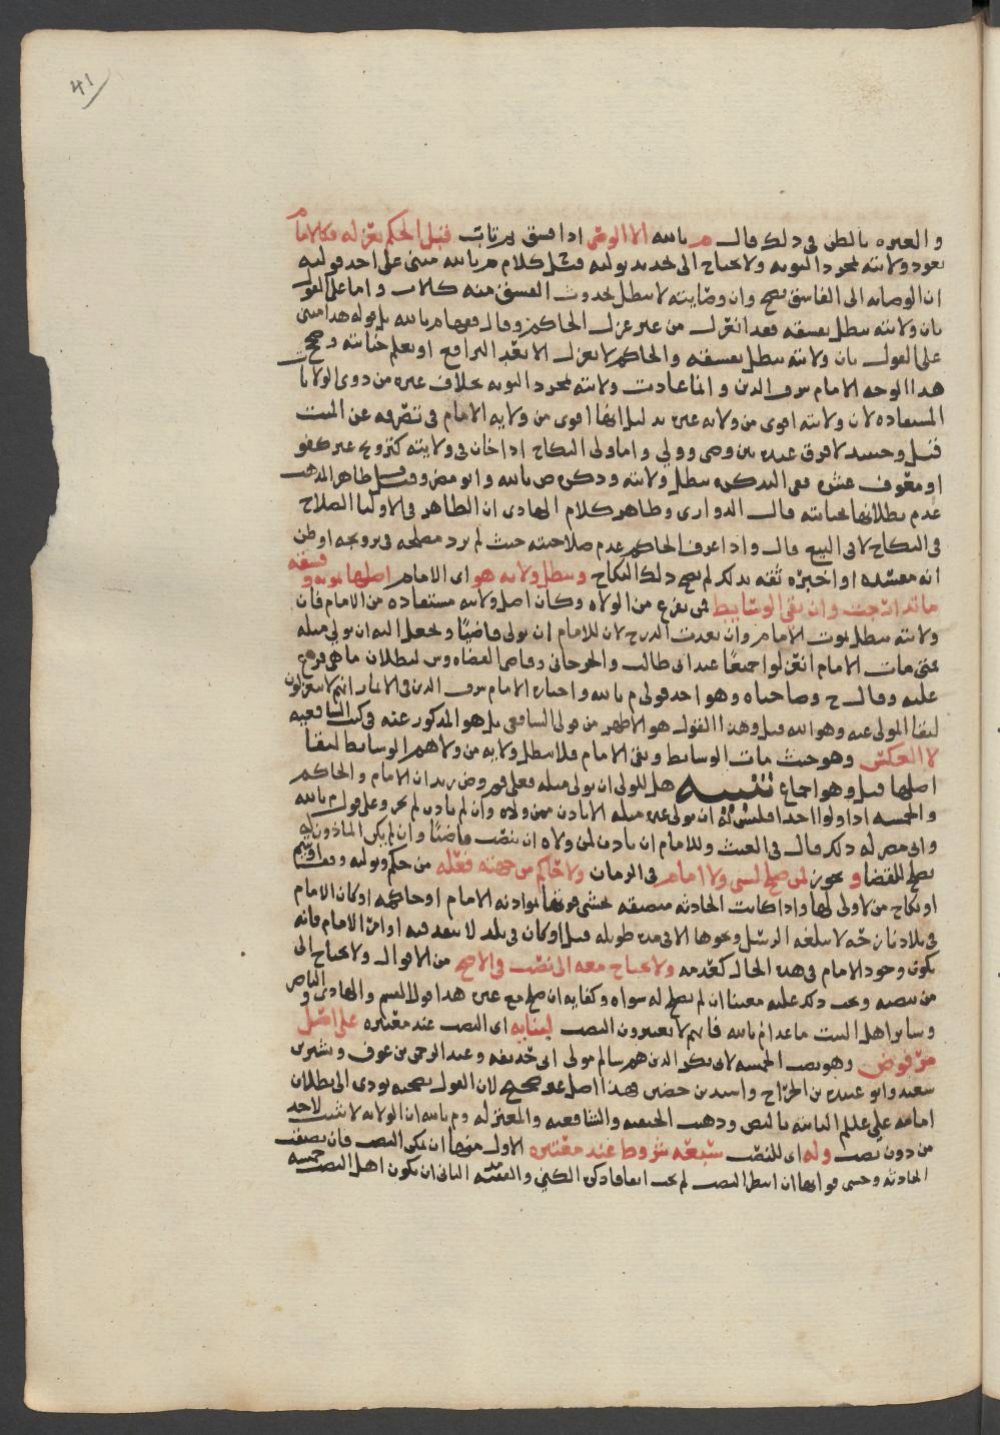 41
والعبره بالظن في ذلك قال م بالله الا الوصي اذا فسق ثم تاب قبل الحكم بعزله فكالامام
تعود ولايته بمجرد التوبه ولا يحتاج الى تجديد توليه قيل كلام م بالله مبني على احد قوليه
ان الوصايه الى الفاسق تصح وان وصايته لا تبطل بحدوث الفسق منه كالاب واما على القول
بان ولايته تبطل بفسقه فقد انعزل من غير عزل الحاكم وقال فيها م بالله بل قوله هذا مبني
على القول بان ولايته تبطل بفسقه والحاكم لا يعزل الا بعد الترافع او يعلم خيانته وصحح
هذا الوجه الامام شرف الدين وانما عادت ولايته بمجرد التوبه بخلاف غيره من ذوي الولايا
المستفاده لان ولايته اقوى من ولايه غيره بدليل انها اقوى من ولايه الامام في تصرفه عن الميت
قيل وحينئذ لا فرق عنده بين وصي وولي واما ولي النكاح اذا خان في ولايته كتزويج غير كفو
او معوف عشره ففي التذكره تبطل ولايته وذكره ص بالله وابو مضر وقيل ظاهر المذهب
عدم بطلانها بخيانته قال الدواري وظاهر كلام الهادي ان الظاهر في الاوليا الصلاح
في النكاح لا في البيع قال واذا عرف الحاكم عدم صلاحيته حيث لم يرد مصلحه في تزويجه او ظن
انه مفسده او اخبره ثقه بذلك لم يصح ذلك النكاح وتبطل ولايه هو اي الامام اصلها بموته وفسقه
ما تدارجت وان بقي الوسايط فمن تفرع من الولاه وكان اصل ولايته مستفاده من الامام فان
ولايته تبطل بموت الامام وان بعدت الدرج لان للامام ان يولي قاضيا ويجعل اليه ان يولي مثله
فمتى مات الامام انعزلوا جميعا عند ابي طالب والجرجاني وقاضي القضاه وس لبطلان ما هي فرع
عليه وقال ح وصاحباه وهو احد قولي م بالله واختاره الامام شرف الدين في الاثمار انهم لا ينعزلون
لبقا المولى عنه وهو الله قيل وهذا القول هو الاظهر من قولي الشافعي بل هو المذكور عنه في كتب الشافعيه
لا العكس وهو حيث مات الوسايط وبقي الامام فلا تبطل ولايه من ولاهم الوسايط لبقا
اصلها قيل وهو اجماع تنبيه هل للمولى ان يولي مثله فعلى قول ض زيد ان الامام والحاكم
والخمسه اذا ولوا احدا فليس له ان يولي غيره مثله الا باذن ممن ولاه وان لم ياذن لم يجز وعلى قول م بالله
وابي مضر له ذلك قال في الغيث وللامام ان ياذن لمن ولاه ان ينصب قاضيا وان لم يكن الماذون له
يصلح للقضا ويجوز لمن صلح لشي ولا امام في الزمان ولا حاكم من جهته فعله من حكم وتوليه وقف او يتيم
او نكاح من لا ولي لها واذا كانت الحادثه مضيقه يخشى فوتها بمواذنه الامام او حاكمه او كان الامام
في بلاد نازحه لا تبلغه الرسل ونحوها الا في مده طويله قيل او كان في بلد لا ينفذ فيه اوامر الامام فانه
يكون وجود الامام في هذه الحال كعدمه ولا يحتاج معه الى نصب في الاصح من الاقوال ولا يحتاج الى
من ينصبه ويجب ذلك عليه معينا ان لم يصلح له سواه وكفايه ان صلح مع غيره هذا قول القسم والهادي والناصر
وساير اهل البيت ما عدا م بالله فانهم لا يعتبرون النصب ليتابه اي النصب عند معتبره على اصل
مرفوض وهو نصب الخمسه لابي بكر الذين هم سالم مولى ابي حذيفه وعبد الرحمن بن عوف وبشير بن
سعيد وابو عبيده بن الجراح واسيد بن حضير هذا اصل غير صحيح لان القول بصحته يودي الى بطلان
امامه علي عليلم الثابته بالنص وذهب الحنفيه والشافعيه والمعتزله وم بالله ان الولايه لا تثبت لاحد
من دون نصب وله اي للنصب سبعه شروط عند معتبره الاول منها ان يمكن النصب فان تضيقت
الحادثه وخشي فواتها ان انتظر النصب لم يجب اتفاقا ذكره الكني والفقيه الثاني ان يكون اهل النصب خمسه